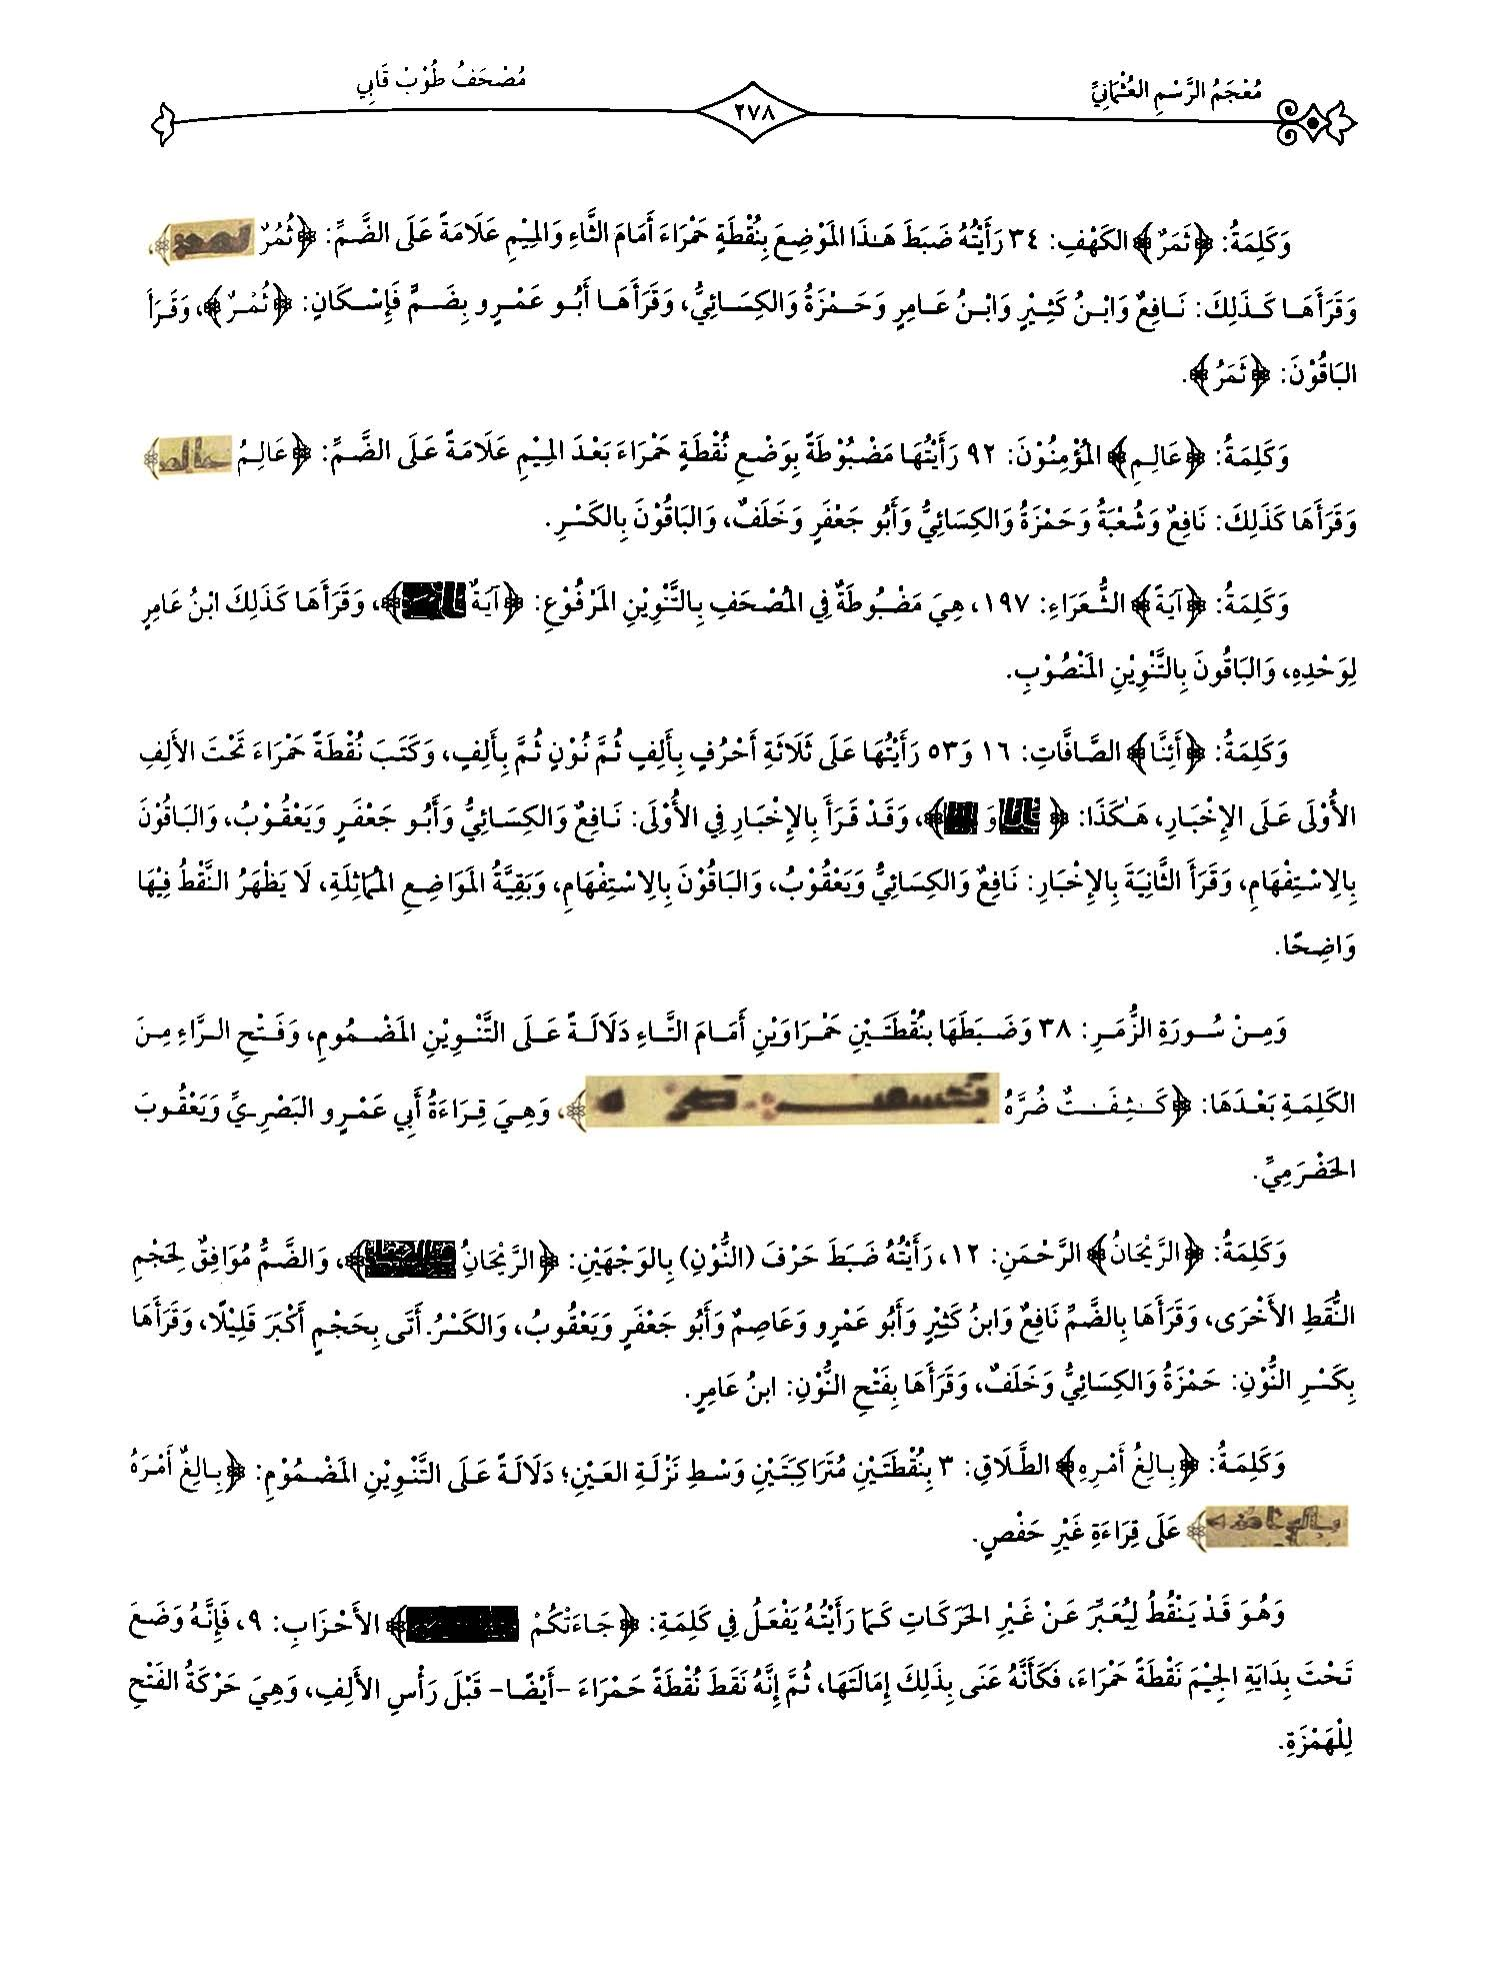 مُعْجَمُ الرَّسْمِ العُثْمَانِيِّ
٢٧٨
مُصْحَفُ طُوْبْ قَابِي
وَكَلِمَةُ: ﴿ثَمَرٌ﴾ الكَهْفِ: ٣٤ رَأَيْتُهُ ضَبَطَ هَـٰذَا المَوْضِعَ بِنُقْطَةٍ حَمْرَاءَ أَمَامَ الثَّاءِ وَالمِيْمِ عَلَامَةً عَلَى الضَّمِّ: ﴿ثُمُرٌ﴾،
وَقَرَأَهَا كَذَلِكَ: نَافِعٌ وَابْنُ كَثِيْرٍ وَابْنُ عَامِرٍ وَحَمْزَةُ وَالكِسَائِيُّ، وَقَرَأَهَا أَبُو عَمْرٍو بِضَمٍّ فَإِسْكَانٍ: ﴿ثُمْرٌ﴾، وَقَرَأَ
البَاقُوْنَ: ﴿ثَمَرُ﴾.
وَكَلِمَةُ: ﴿عَالِمِ﴾ المُؤْمِنُوْنَ: ٩٢ رَأَيْتُهَا مَضْبُوْطَةً بِوَضْعِ نُقْطَةٍ حَمْرَاءَ بَعْدَ المِيْمِ عَلَامَةً عَلَى الضَّمِّ: ﴿عَالِمُ﴾
وَقَرَأَهَا كَذَلِكَ: نَافِعٌ وَشُعْبَةُ وَحَمْزَةُ وَالكِسَائِيُّ وَأَبُو جَعْفَرٍ وَخَلَفٌ، وَالبَاقُوْنَ بِالكَسْرِ.
وَكَلِمَةُ: ﴿آيَةً﴾ الشُّعَرَاءِ: ١٩٧، هِيَ مَضْبُوطَةٌ فِي المُصْحَفِ بِالتَّنْوِيْنِ المَرْفُوْعِ: ﴿آيَةٌ﴾، وَقَرَأَهَا كَذَلِكَ ابْنُ عَامِرٍ
لِوَحْدِهِ، وَالبَاقُونَ بِالتَّنْوِيْنِ المَنْصُوْبِ.
وَكَلِمَةُ: ﴿أَئِنَّا﴾ الصَّافَّاتِ: ١٦ وَ٥٣ رَأَيْتُهَا عَلَى ثَلَاثَةِ أَحْرُفٍ بِأَلِفٍ ثُمَّ نُوْنٍ ثُمَّ بِأَلِفٍ، وَكَتَبَ نُقْطَةً حَمْرَاءَ تَحْتَ الأَلِفِ
الأُوْلَى عَلَى الإِخْبَارِ، هَـٰكَذَا: ﴿ وَ ﴾، وَقَدْ قَرَأَ بِالإِخْبَارِ فِي الأُوْلَى: نَافِعٌ وَالكِسَائِيُّ وَأَبُو جَعْفَرٍ وَيَعْقُوْبُ، وَالبَاقُوْنَ
بِالِاسْتِفْهَامِ، وَقَرَأَ الثَّانِيَةَ بِالإِخْبَارِ: نَافِعٌ وَالكِسَائِيُّ وَيَعْقُوْبُ، وَالبَاقُوْنَ بِالِاسْتِفْهَامِ، وَبَقِيَّةُ المَوَاضِعِ المُمَاثِلَةِ، لَا يَظْهَرُ النَّقْطُ فِيْهَا
وَاضِحًا.
وَمِنْ سُورَةِ الزُّمَرِ: ٣٨ وَضَبَطَهَا بِنُقْطَتَيْنِ حَمْرَاوَيْنِ أَمَامَ التَّاءِ دَلَالَةً عَلَى التَّنْوِيْنِ المَضْمُومِ، وَفَتْحِ الرَّاءِ مِنَ
الكَلِمَةِ بَعْدَهَا: ﴿كَـٰشِفَـٰتٌ ضُرَّهُ﴾، وَهِيَ قِرَاءَةُ أَبِي عَمْرٍو البَصْرِيِّ وَيَعْقُوبَ
الحَضْرَمِيِّ.
وَكَلِمَةُ: ﴿الرَّيْحَانُ﴾ الرَّحْمَنِ: ١٢، رَأَيْتُهُ ضَبَطَ حَرْفَ (النُّوْنِ) بِالوَجْهَيْنِ: ﴿الرَّيْحَانُِ﴾، وَالضَّمُّ مُوَافِقٌ لِحَجْمِ
النُّقَطِ الأَخْرَى، وَقَرَأَهَا بِالضَّمِّ نَافِعٌ وَابنُ كَثِيْرٍ وَأَبُو عَمْرٍو وَعَاصِمٌ وَأَبُو جَعْفَرٍ وَيَعْقُوبُ، وَالكَسْرُ. أَتَى بِحَجْمٍ أَكْبَرَ قَلِيْلًا، وَقَرَأَهَا
بِكَسْرِ النُّوْنِ: حَمْزَةُ وَالكِسَائِيُّ وَخَلَفٌ، وَقَرَأَهَا بِفَتْحِ النُّوْنِ: ابنُ عَامِرٍ.
وَكَلِمَةُ: ﴿بِالِغُ أَمْرِهِ﴾ الطَّلَاقِ: ٣ بِنُقْطَتَيْنِ مُتَرَاكِبَتَيْنِ وَسْطِ نَزْلَةِ العَيْنِ؛ دَلَالَةً عَلَى التَّنْوِيْنِ المَضْمُوْمِ: ﴿بِالِغٌ أَمْرَهُ
﴾ عَلَى قِرَاءَةِ غَيْرِ حَفْصٍ.
وَهُوَ قَدْ يَنْقُطُ لِيُعَبِّرَ عَنْ غَيْرِ الحَرَكَاتِ كَمَا رَأَيْتُهُ يَفْعَلُ فِي كَلِمَةِ: ﴿جَاءَتْكُمْ﴾ الأَحْزَابِ: ٩، فَإِنَّهُ وَضَعَ
تَحْتَ بِدَايَةِ الجِيْمَ نَقْطَةً حَمْرَاءَ، فَكَأَنَّهُ عَنَى بِذَلِكَ إِمَالَتَهَا، ثُمَّ إِنَّهُ نَقَطَ نُقْطَةً حَمْرَاءَ -أَيْضًا- قَبْلَ رَأْسِ الأَلِفِ، وَهِيَ حَرْكَةُ الفَتْحِ
لِلْهَمْزَةِ.